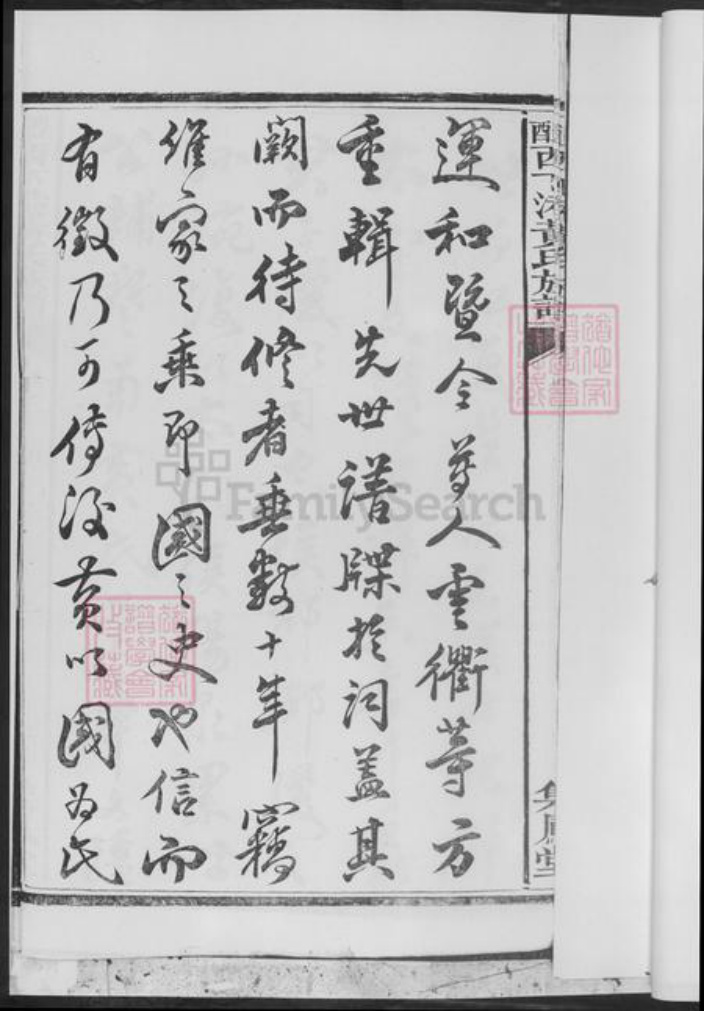 運和暨令尊人雲衢等方
重輯先世譜牒於祠蓋其
闕而待修者垂數十年竊
維家之乘即國之史也信而
有徵乃可傳後黃以國為氏
黃氏族譜
FamilySearch